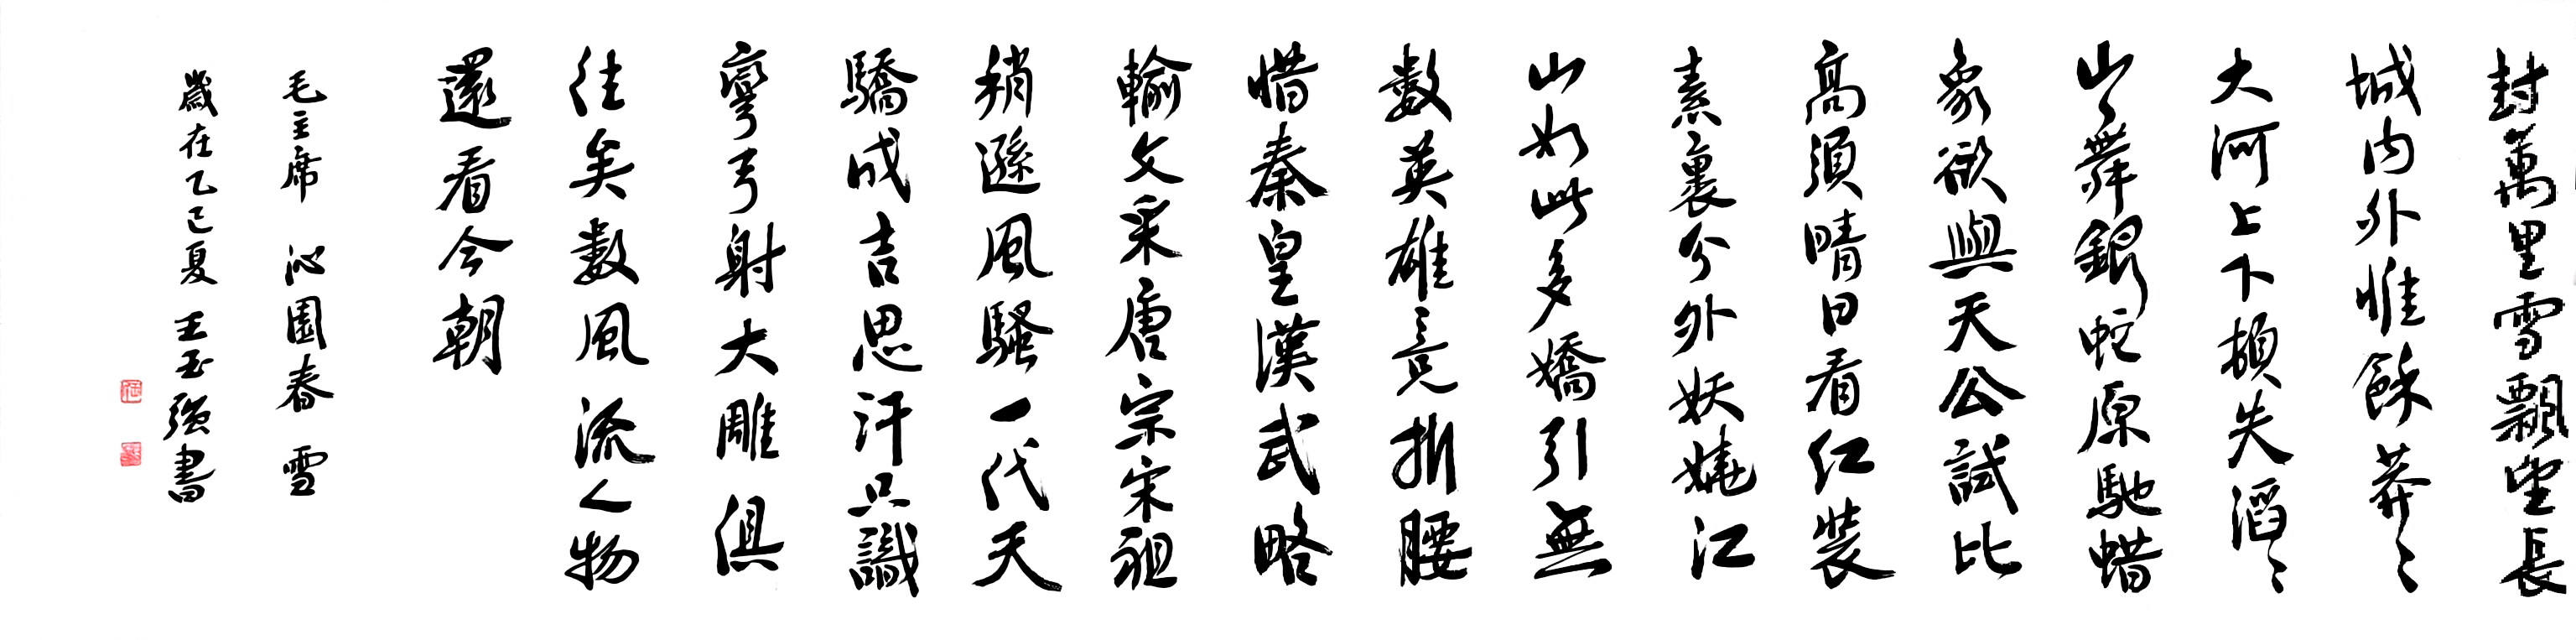 封萬里雪飄望長
城内外惟餘莽〻
大河上下頓失滔〻
山舞銀蛇原馳蜡
象欲與天公試比
高須晴日看红裝
素裹分外妖嬈江
山如此多嬌引無
數英雄竞折腰
惜秦皇漢武略
輸文采唐宗宋祖
稍遜風騷一代天
驕成吉思汗只識
彎弓射大雕俱
往矣數風流人物
還看今朝
毛主席 沁園春 雪
歲在乙巳夏 王玉强書